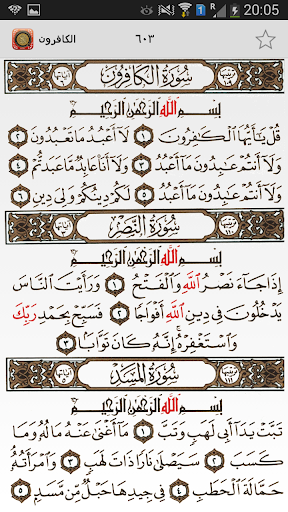 20:05
الكافرون
٦٠٣
سُورَةُ الكَافِرُونَ
بِسْمِ اللَّهِ الرَّحْمَٰنِ الرَّحِيمِ
قُلْ يَا أَيُّهَا الْكَافِرُونَ ١ لَا أَعْبُدُ مَا تَعْبُدُونَ ٢
وَلَا أَنتُمْ عَابِدُونَ مَا أَعْبُدُ ٣ وَلَا أَنَا عَابِدٌ مَّا عَبَدتُّمْ
٤ وَلَا أَنتُمْ عَابِدُونَ مَا أَعْبُدُ ٥ لَكُمْ دِينُكُمْ وَلِيَ دِينِ ٦
سُورَةُ النَّصْرِ
بِسْمِ اللَّهِ الرَّحْمَٰنِ الرَّحِيمِ
إِذَا جَاءَ نَصْرُ اللَّهِ وَالْفَتْحُ ١ وَرَأَيْتَ النَّاسَ
يَدْخُلُونَ فِي دِينِ اللَّهِ أَفْوَاجًا ٢ فَسَبِّحْ بِحَمْدِ رَبِّكَ
وَاسْتَغْفِرْهُ إِنَّهُ كَانَ تَوَّابًا ٣
سُورَةُ المَسَدِ
بِسْمِ اللَّهِ الرَّحْمَٰنِ الرَّحِيمِ
تَبَّتْ يَدَا أَبِي لَهَبٍ وَتَبَّ ١ مَا أَغْنَىٰ عَنْهُ مَالُهُ وَمَا
كَسَبَ ٢ سَيَصْلَىٰ نَارًا ذَاتَ لَهَبٍ ٣ وَامْرَأَتُهُ
حَمَّالَةَ الْحَطَبِ ٤ فِي جِيدِهَا حَبْلٌ مِّن مَّسَدٍ ٥